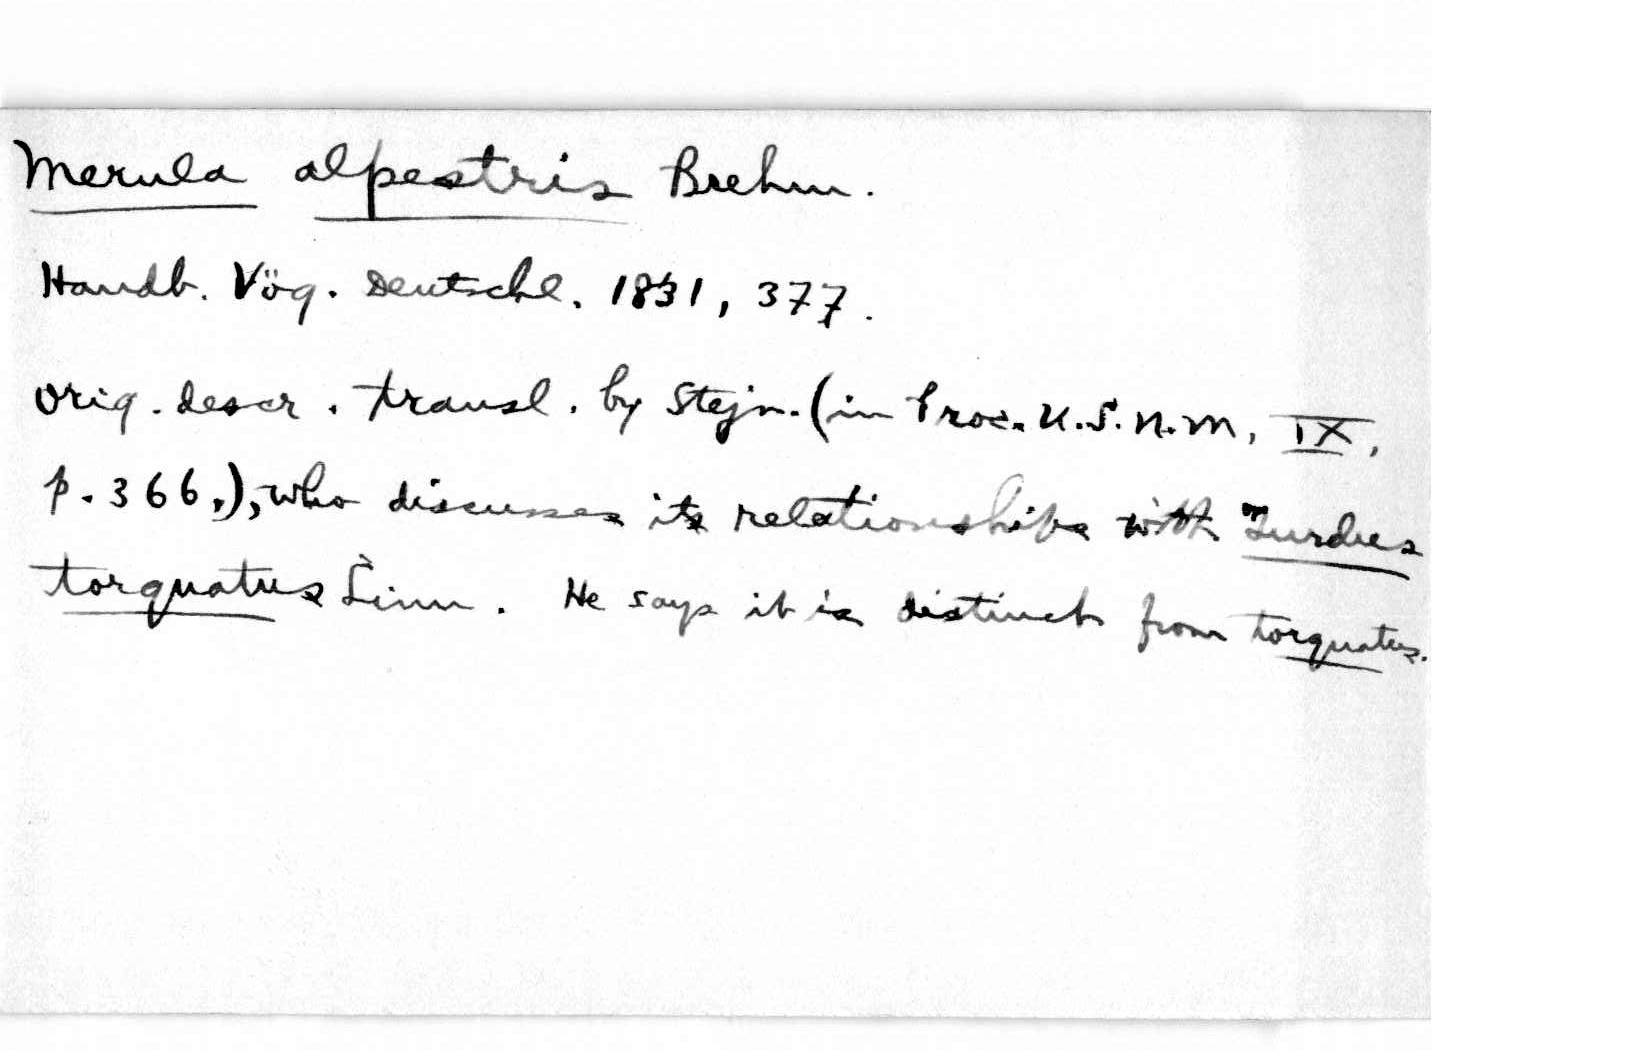 Merula alpestris Brehm.
Handb. Vög. Deutschl. 1831, 377.
Orig. descr. transl. by Stejn. (in Proc. U.S.N.M, IX,
p. 366,), who discusses its relationships with Turdus
torquatus Linn. He says it is distinct from torquatus.